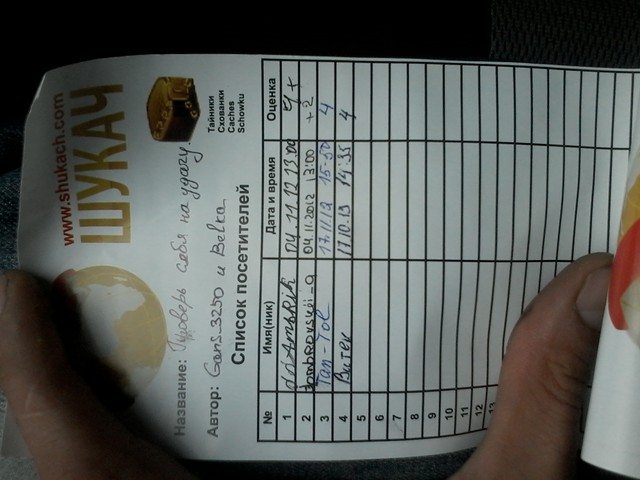 www.shukach.com
ШУКАЧ
Тайники
Схованки
Caches
Schowku
Название: Проверь себя на удачу.
Автор: Gans_3250 и Belka
Список посетителей
№ Имя(ник) Дата и время Оценка
1 04.11.12 13.00 4+
2 dombrovskij-a 04.11.2012 13:00 +2
3 Tan-Tol 17.11.12 15-50 4
4 Витек 17.10.13 14:35 4
5
6
7
8
9
10
11
12